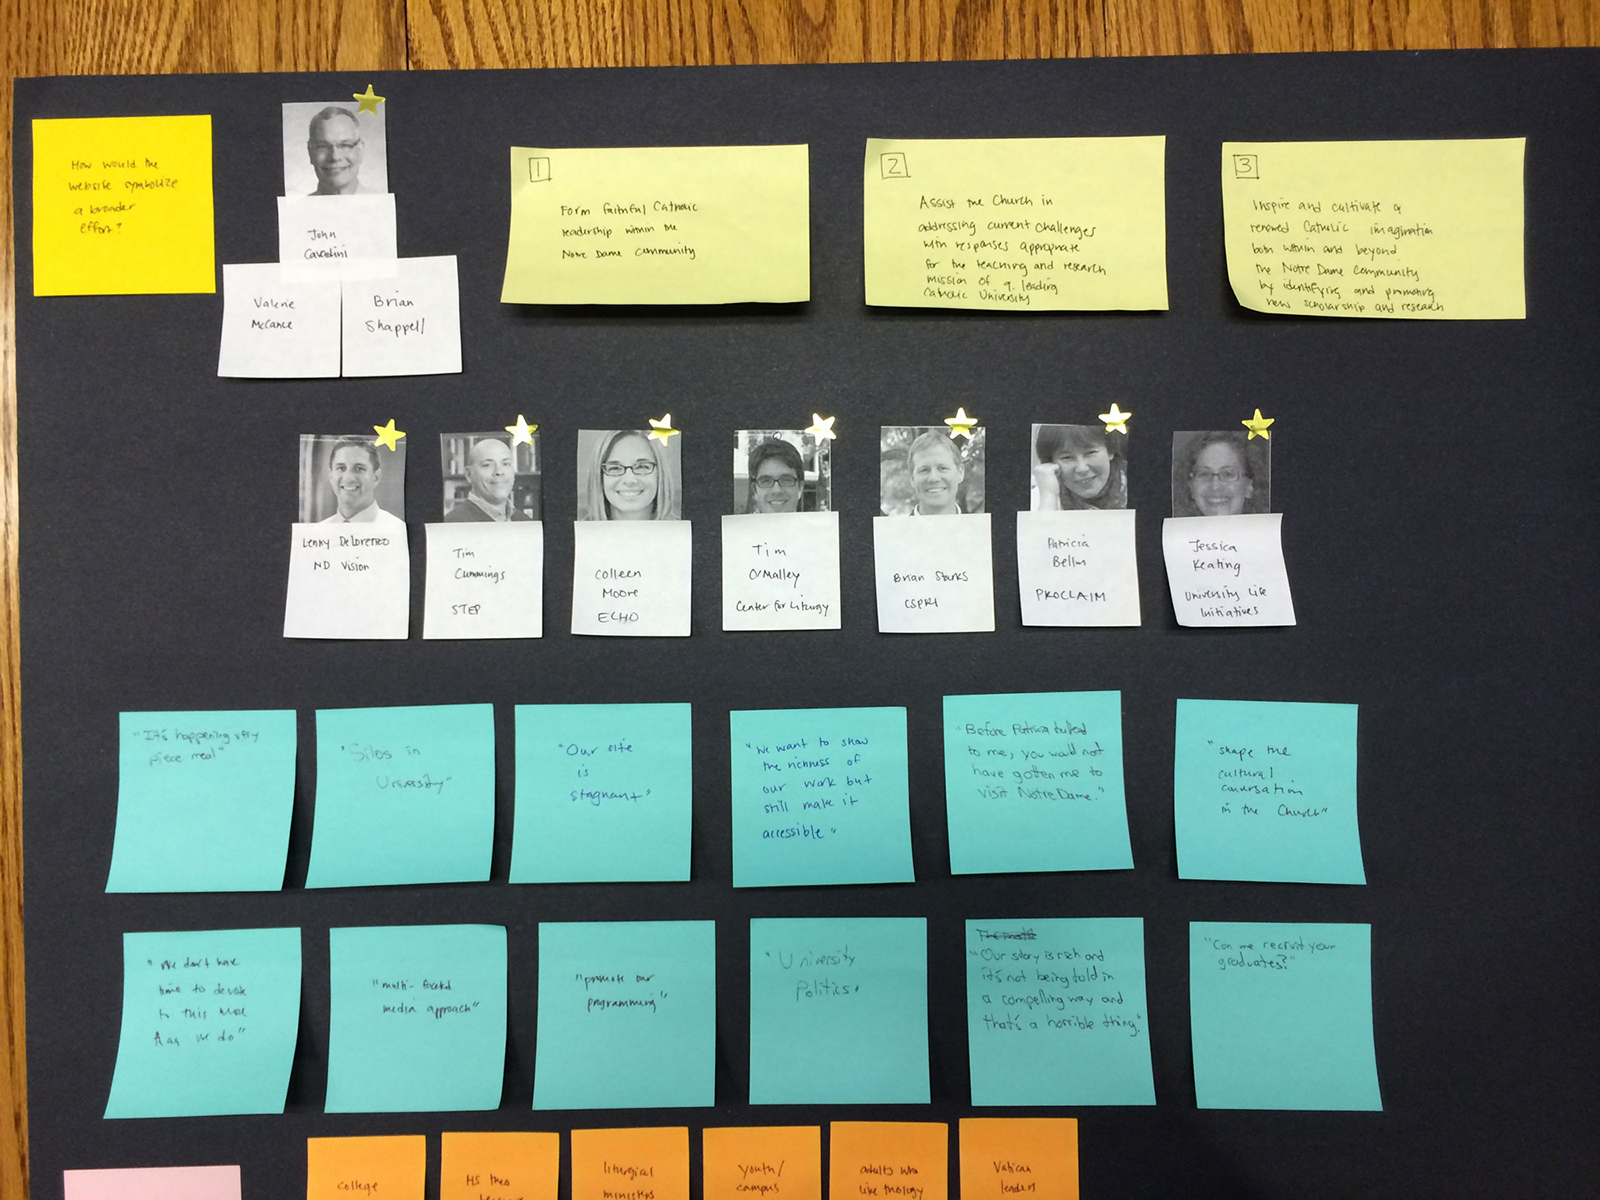 How would the
website symbolize
a broader
effort?
John
Cavadini
Valerie
McCance
Brian
Shappell
1
Form faithful Catholic
leadership within the
Notre Dame Community
2
Assist the Church in
addressing current challenges
with responses appropriate
for the teaching and research
mission of a leading
Catholic University
3
Inspire and cultivate a
renewed Catholic imagination
both within and beyond
the Notre Dame Community
by identifying and promoting
new scholarship and research
Lenny DeLorenzo
ND Vision
Tim
Cummings
STEP
Colleen
Moore
ECHO
Tim
O'Malley
Center for Liturgy
Brian Starks
CSPRI
Patricia
Bellm
PROCLAIM
Jessica
Keating
University Life
Initiatives
"It's happening very
piece meal"
"Silos in
University"
"Our site
is
stagnant"
"We want to show
the richness of
our work but
still make it
accessible"
"Before Patricia talked
to me, you would not
have gotten me to
visit Notre Dame."
"shape the
cultural
conversation
in the Church"
"We don't have
time to devote
to this more
than we do"
"multi-faceted
media approach"
"promote our
programming"
"University
Politics.
"Our story is rich and
it's not being told in
a compelling way and
that's a horrible thing."
"Can we recruit your
graduates?"
college
HS theo
liturgical
ministers
youth/
campus
adults who
like theology
Vatican
leaders